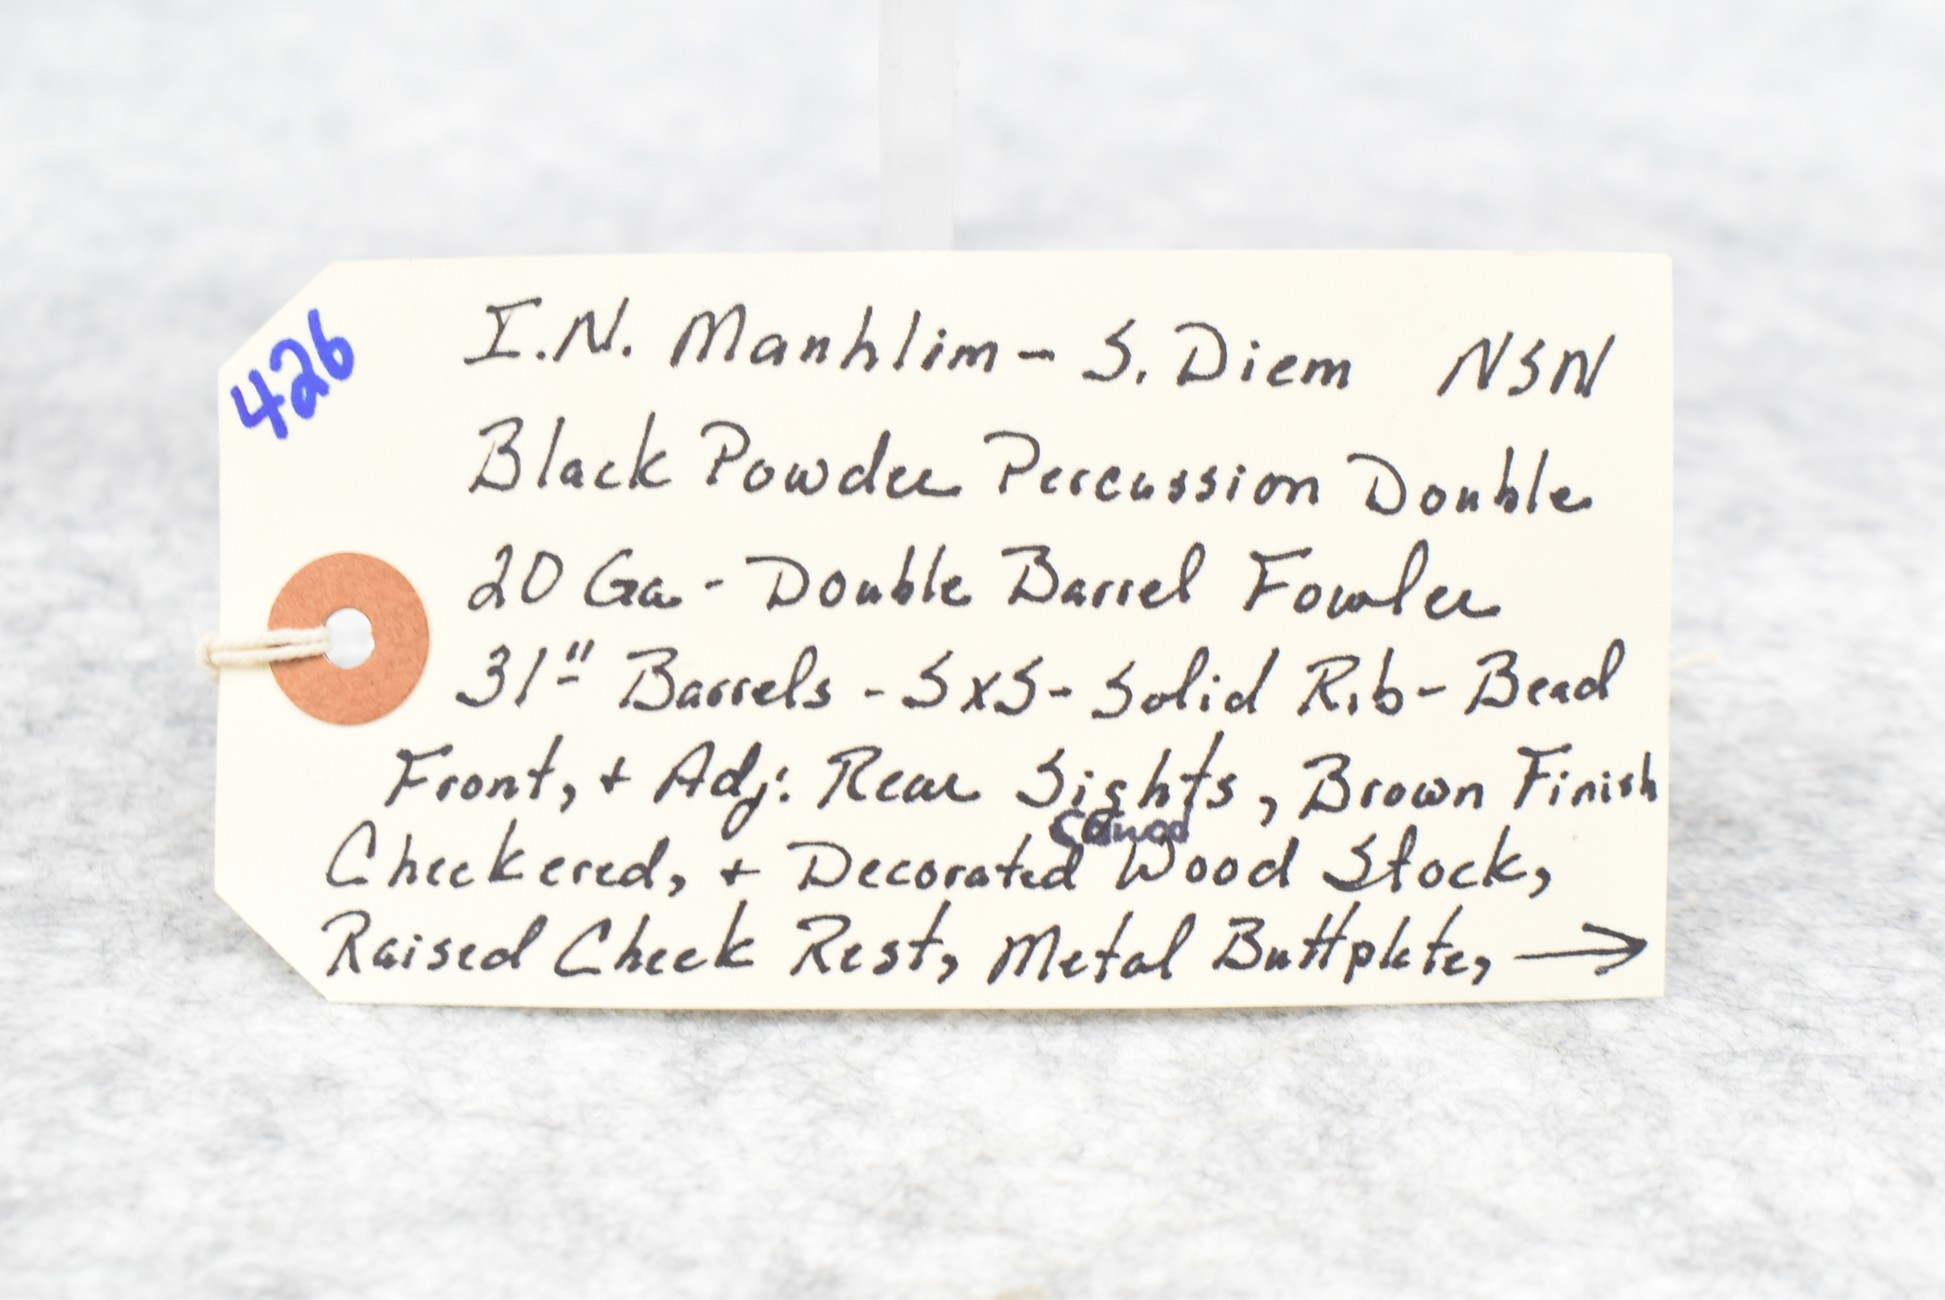 426
I.N. Manhlim - S. Diem NSN
Black Powder Percussion Double
20 Ga - Double Barrel Fowler
31" Barrels - SxS - Solid Rib - Bead
Front, + Adj. Rear Sights, Brown Finish
Checkered, + Decorated Wood Stock,
Raised Cheek Rest, Metal Buttplate, →